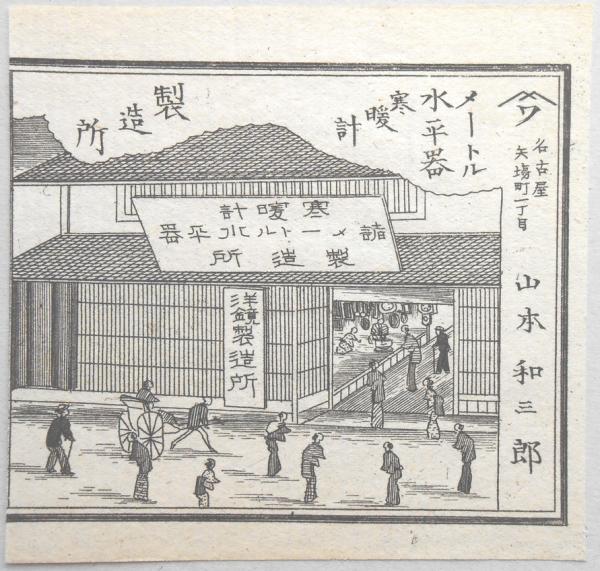 ワ
名古屋
矢塲町一丁目
山本和三郎
メートル
水平器
寒暖計
製造所
寒暖計
諸メートル水平器
製造所
洋鏡製造所